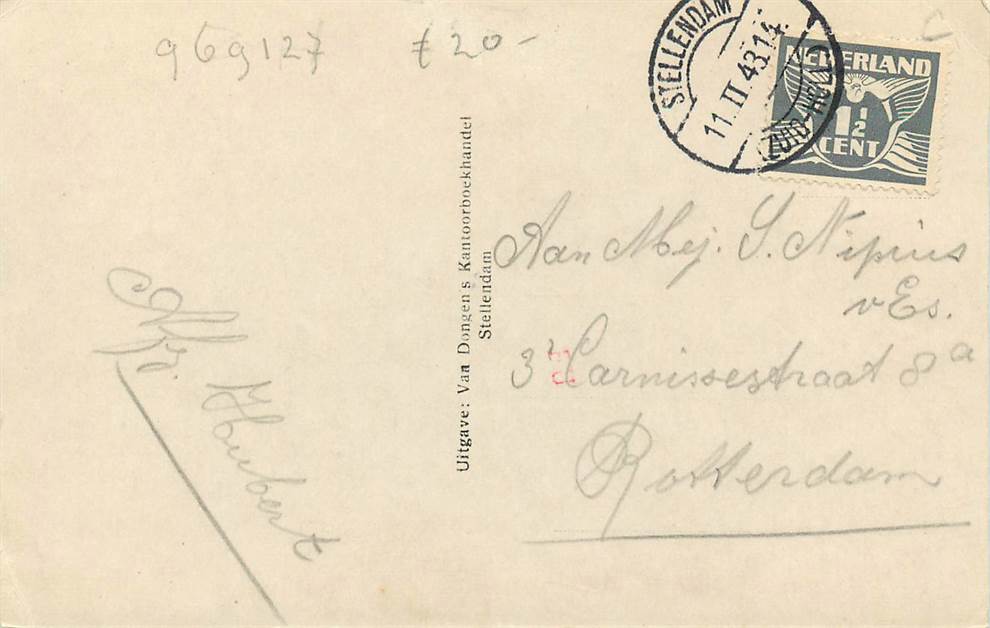 969127 £20-
C
STELLENDAM
11.II.43.14.
(ZUID-HOLL)
NEDERLAND
1½
CENT
Uitgave: Van Dongen's Kantoorboekhandel
Stellendam
Aan Mej. S. Nipius
v Es.
3e Carnissestraat 8a
Rotterdam
Hubert